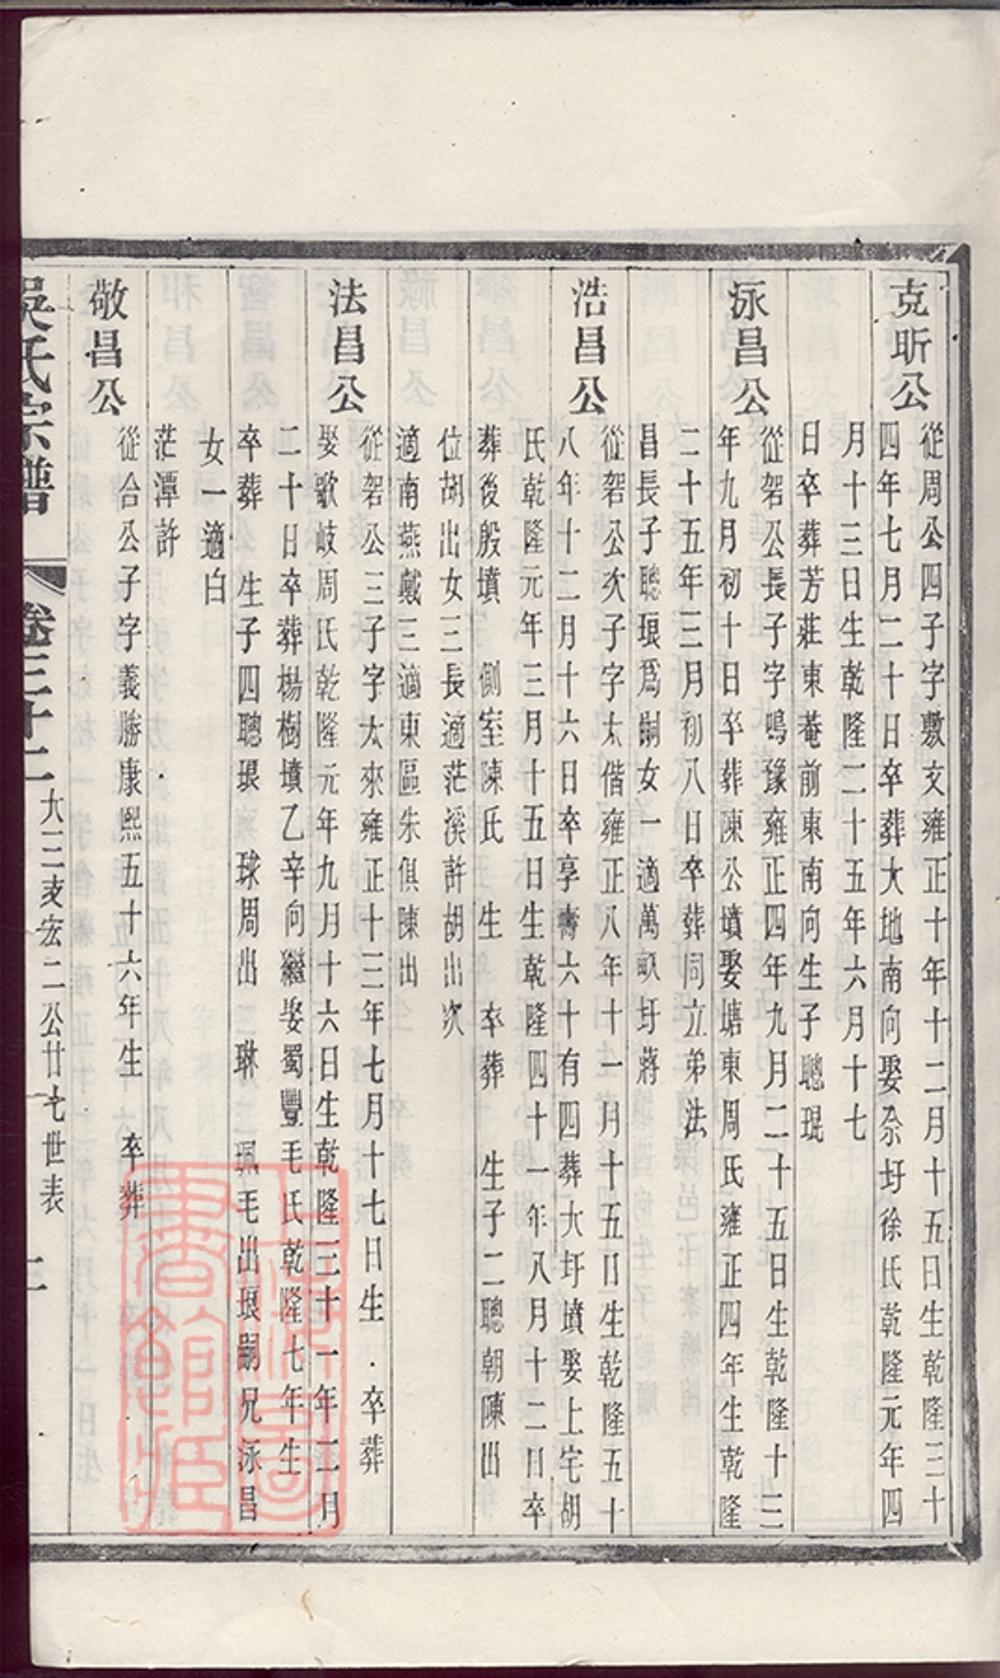 克昕公
從周公四子字敷文雍正十年十二月十五日生乾隆三十
四年七月二十日卒葬大地南向娶佘圩徐氏乾隆元年四
月十三日生乾隆二十五年六月十七
日卒葬芳莊東菴前東南向生子聰琨
泳昌公
從䂟公長子字鳴豫雍正四年九月二十五日生乾隆十三
年九月初十日卒葬陳公墳娶塘東周氏雍正四年生乾隆
二十五年三月初八日卒葬同立弟法
昌長子聰琅爲嗣女一適萬畝圩蔣
浩昌公
從䂟公次子字太偕雍正八年十一月十五日生乾隆五十
八年十二月十六日卒享壽六十有四葬大圩墳娶上宅胡
氏乾隆元年三月十五日生乾隆四十一年八月十二日卒
葬後般墳 側室陳氏 生 卒葬 生子二聰朝陳出
位胡出女三長適茫溪許胡出次
適南燕戴三適東區朱俱陳出
法昌公
從䂟公三子字太來雍正十三年七月十七日生 卒葬
娶歌岐周氏乾隆元年九月十六日生乾隆三十一年二月
二十日卒葬楊樹墳乙辛向繼娶蜀豐毛氏乾隆七年生
卒葬 生子四聰琅 球周出 琳 珮毛出琅嗣兄泳昌
女一適白
茫潭許
敬昌公
從合公子字義勝康熙五十六年生 卒葬
吳氏宗譜 卷三十二 大三支宏二公廿七世表 二
上海圖
書館藏